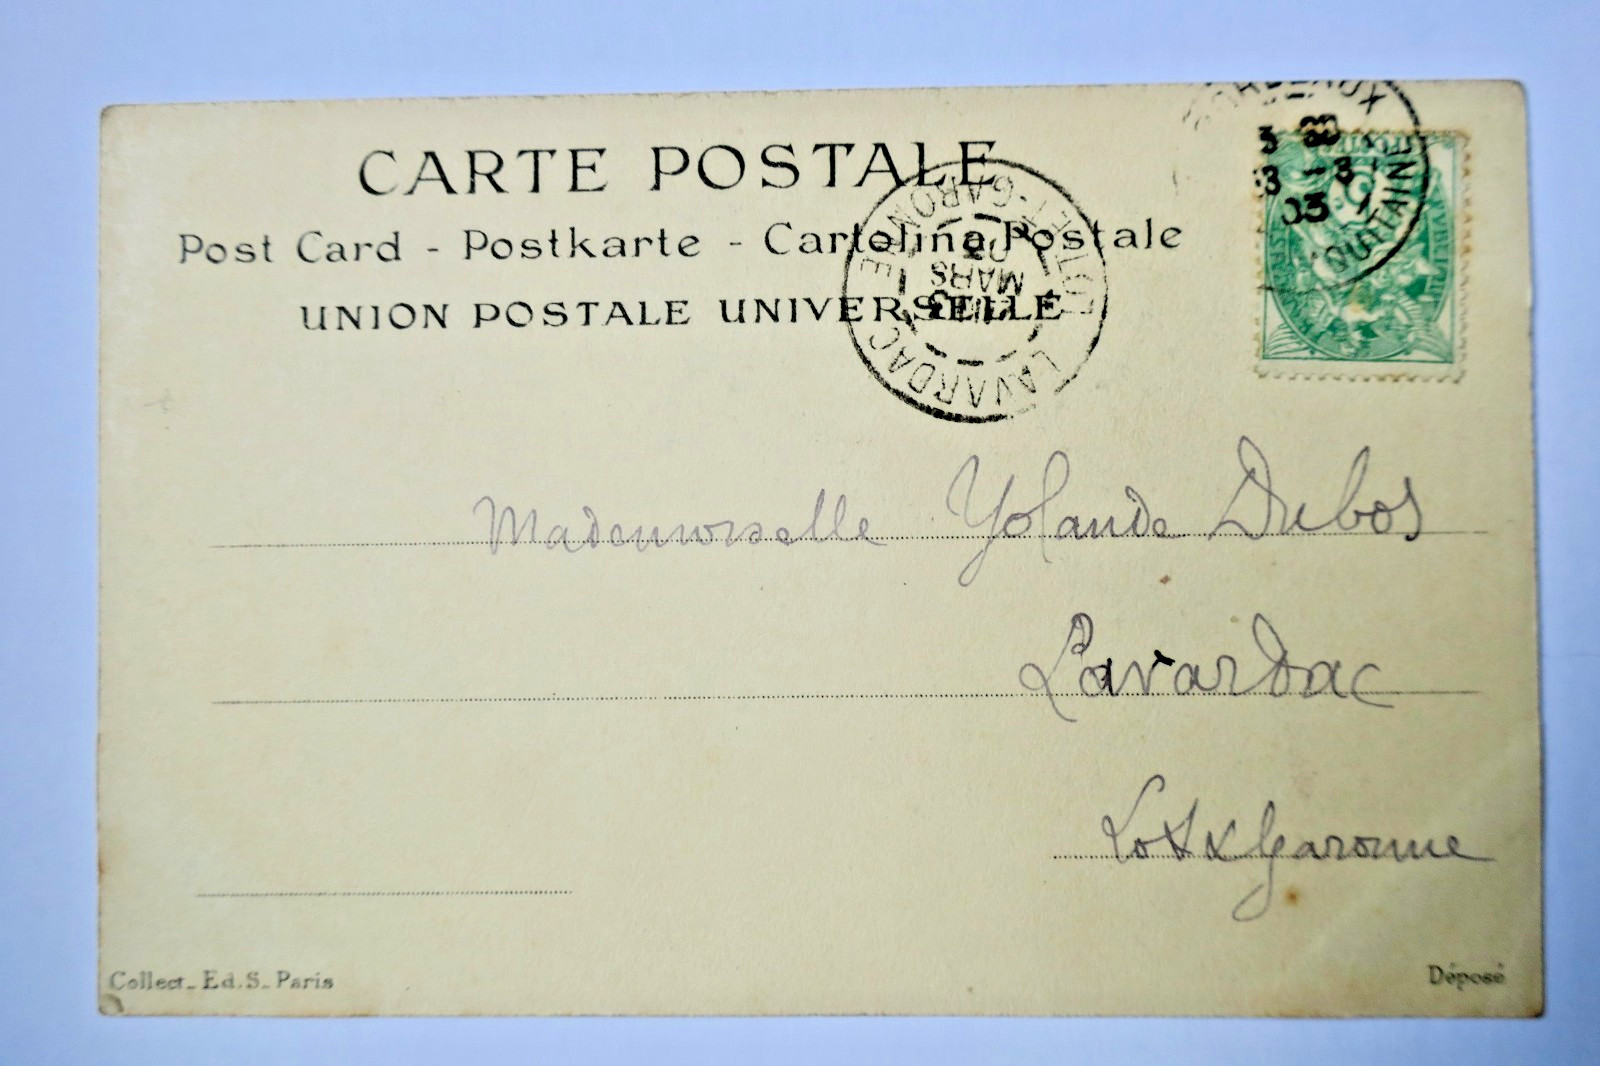 CARTE POSTALE
Post Card - Postkarte - Cartolina Postale
UNION POSTALE UNIVERSELLE
LAVARDAC
LOT-ET-GARONNE
MARS
03
3 -3
03
Mademoiselle Yolande Dubos
Lavardac
Lot & Garonne
Collect. Ed. S. Paris
Déposé